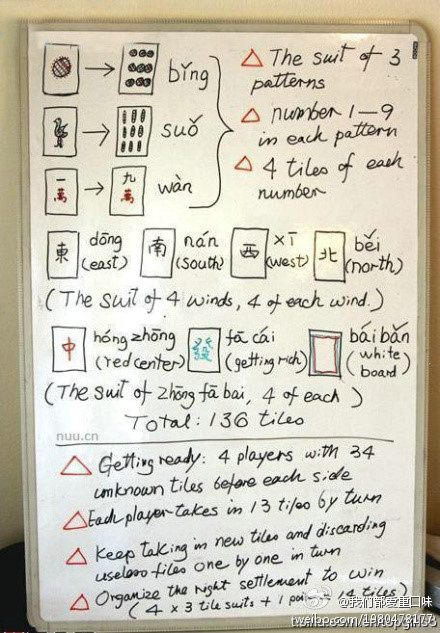 bǐng
suǒ
一萬 → 九萬 wàn
△ The suit of 3
patterns
△ number 1—9
in each pattern
△ 4 tiles of each
number
東 dōng (east) 南 nán (south) 西 xī (west) 北 běi (north)
(The suit of 4 winds, 4 of each wind.)
中 hóng zhōng (red center) 發 fā cái (getting rich) bái bǎn (white board)
(The suit of zhōng fā bai, 4 of each)
Total: 136 tiles
nuu.cn
△ Getting ready: 4 players with 34
unknown tiles before each side
△ Each player takes in 13 tiles by turn
△ Keep taking in new tiles and discarding
useless tiles one by one in turn
△ Organize the right settlement to win
(4 x 3 tile suits + 1 = 14 tiles)
@我们都爱重口味
weibo.com/1980473177